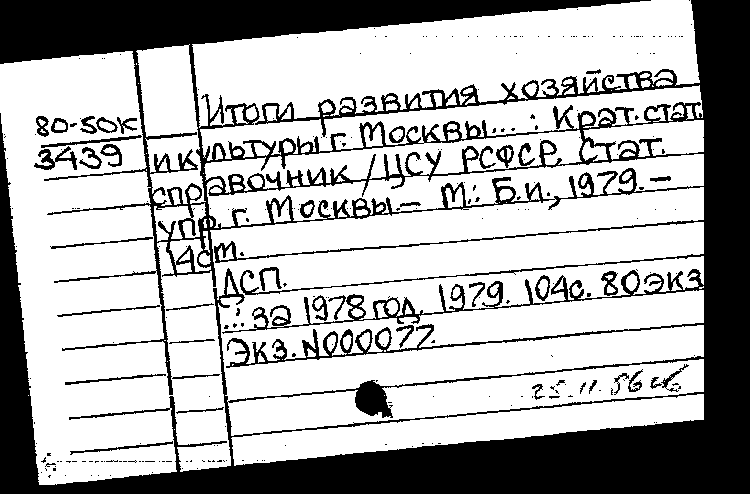 80-50К
3439
Итоги развития хозяйства
и культуры г. Москвы... : Крат. стат.
справочник / ЦСУ РСФСР. Стат.
упр. г. Москвы. – М.: Б.и., 1979. –
14см.
ДСП.
...: за 1978 год. 1979. 104с. 80 экз
Экз. N000077.
25.11.86